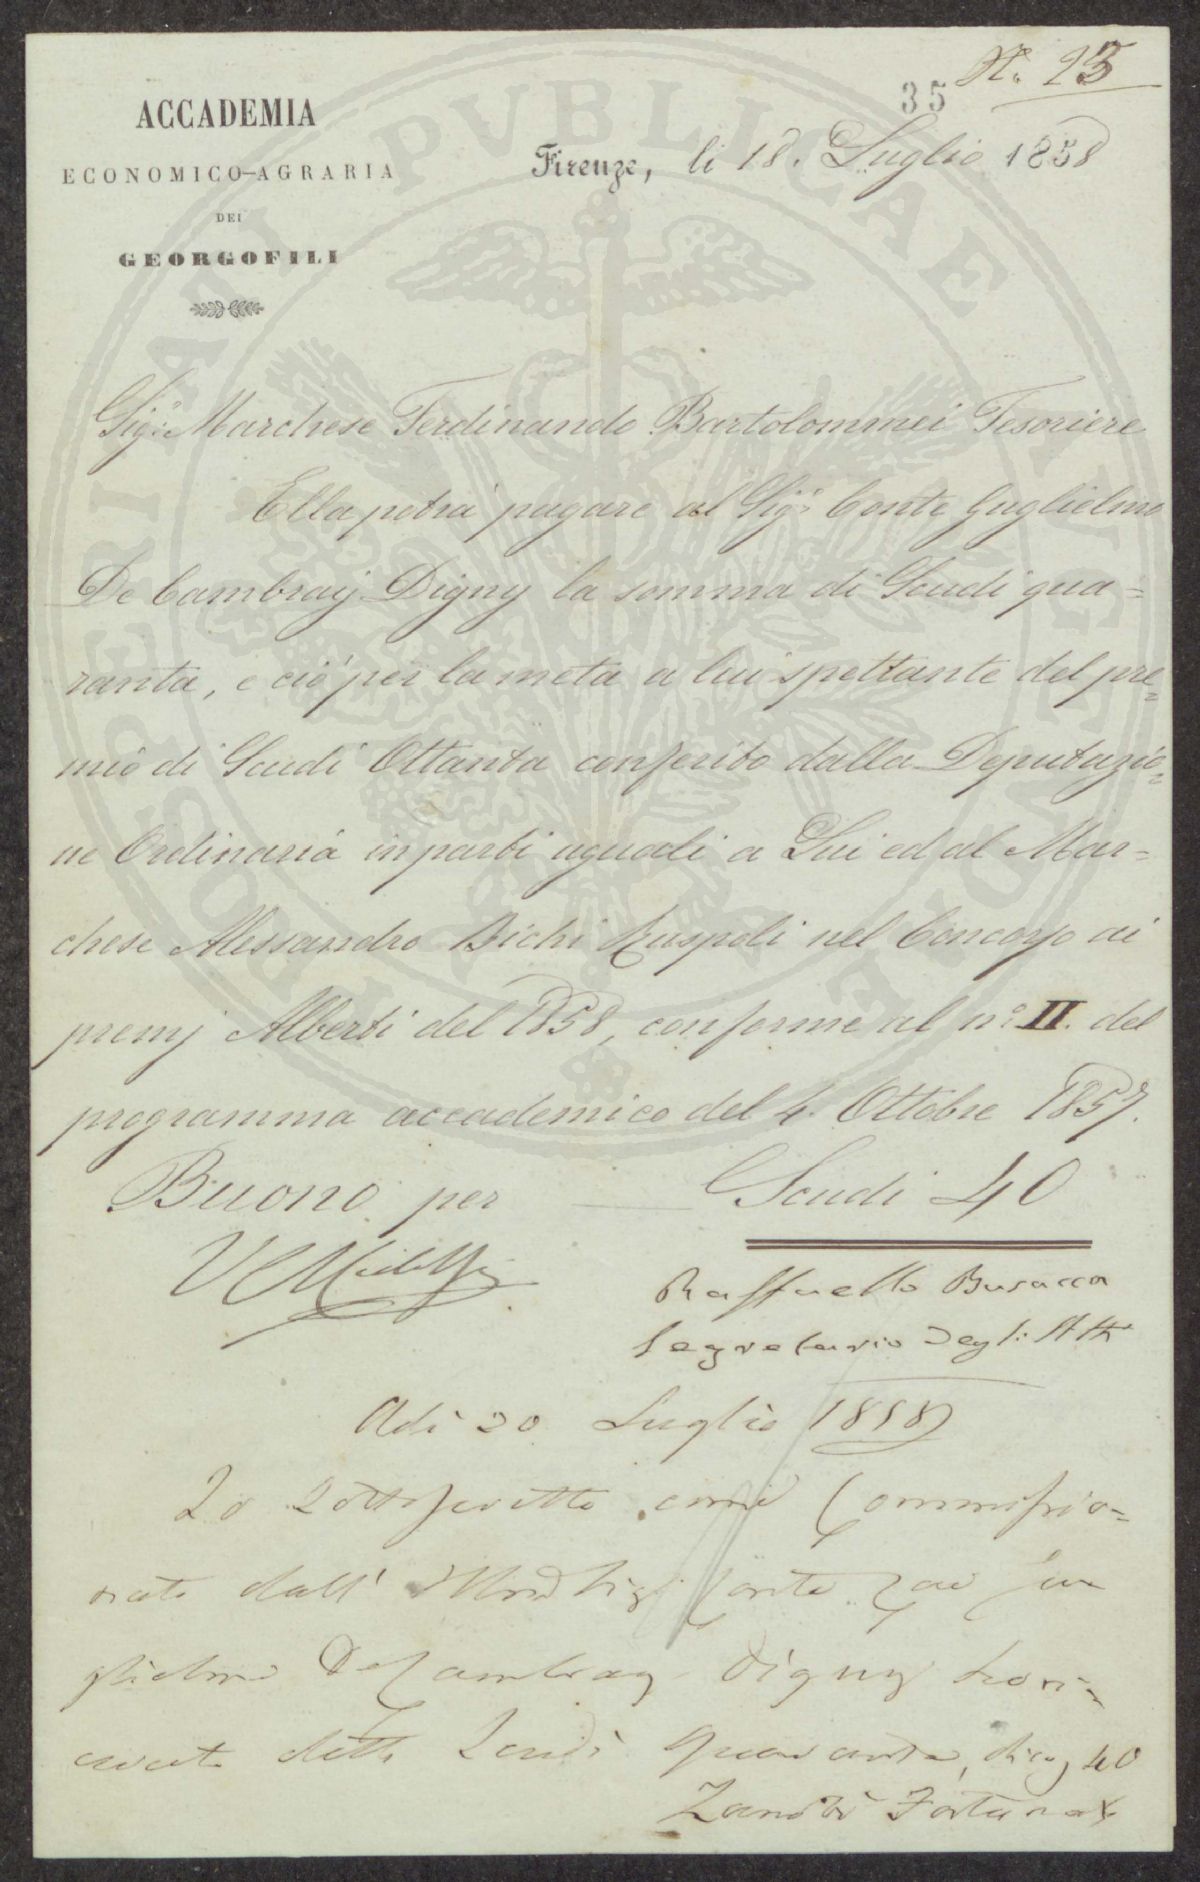 N.º 23
35
ACCADEMIA
ECONOMICO-AGRARIA
DEI
GEORGOFILI
Firenze, li 18. Luglio 1858
Sig.r Marchese Ferdinando Bartolommei Tesoriere
Ella potrà pagare al Sig.r Conte Guglielmo
De Cambray Digny la somma di Scudi qua=
ranta, e ciò per la metà a lui spettante del pre=
mio di Scudi Ottanta conferito dalla Deputazio=
ne Ordinaria in parti uguali a Lui ed al Mar=
chese Alessandro Bichi Ruspoli nel Concorso ai
premj Alberti del 1858, conforme al n.º II. del
programma accademico del 4. Ottobre 1857.
Buono per Scudi 40
Raffaello Busacca
Segretario degli Atti
Adì 20 Luglio 1858
Io Sottoscritto come Commissio=
nato dall' Sig. Conte
glielmo De Cambray Digny ho ri=
cevuto detti Scudi Quaranta, dico 40
Zanobi Fortunati
PROSPERITATI PVBLICAE AVGENDAE